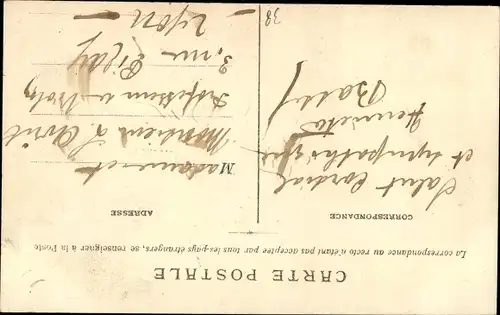 CARTE POSTALE
La correspondance au recto n'étant pas acceptée par tous les pays étrangers, se renseigner à la Poste
CORRESPONDANCE
Salut Cordial
et sympathique
Henriette
ADRESSE
Madame et
Monsieur
Professeur
3, rue
Lyon
38